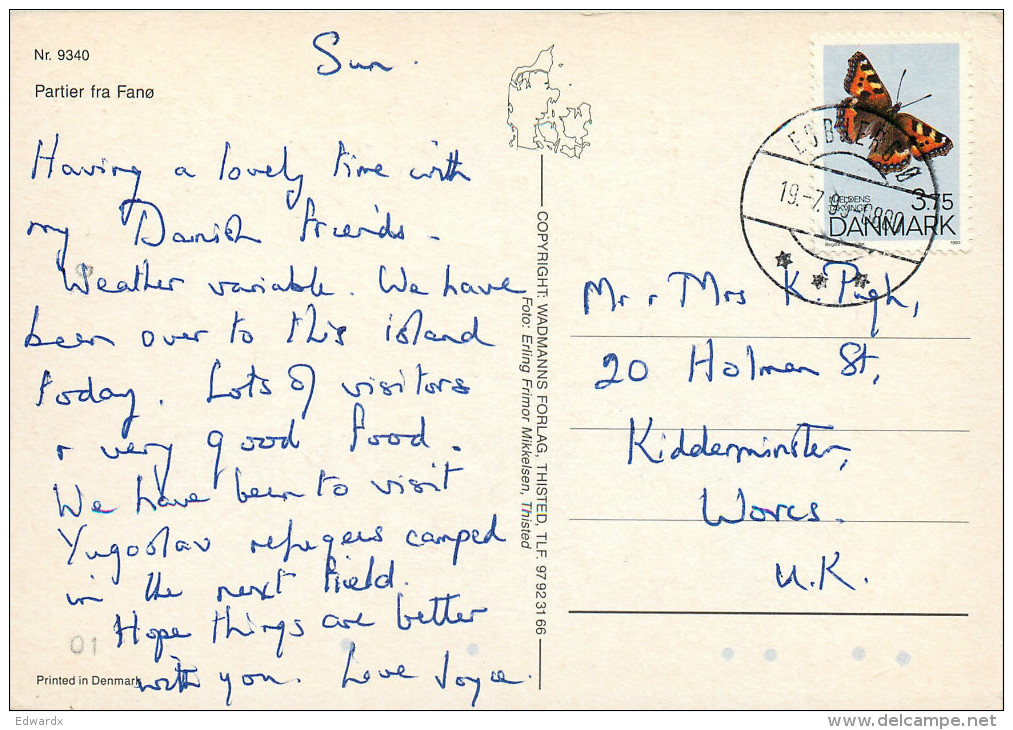 Nr. 9340
Partier fra Fanø
Sun.
Having a lovely time with
my Danish friends.
Weather variable. We have
been over to this island
today. Lots of visitors
& very good food.
We have been to visit
Yugoslav refugees camped
in the next field.
Hope things are better
with you. Love Joyce.
01
Printed in Denmark
COPYRIGHT: WADMANNS FORLAG, THISTED, TLF. 97 92 31 66
Foto: Erling Frimor Mikkelsen, Thisted
ESBJERG Ø
19.-7.93
3.75
DANMARK
Mr & Mrs K. Pugh,
20 Holman St,
Kidderminster,
Worcs.
U.K.
Edwardx
delcampe.net